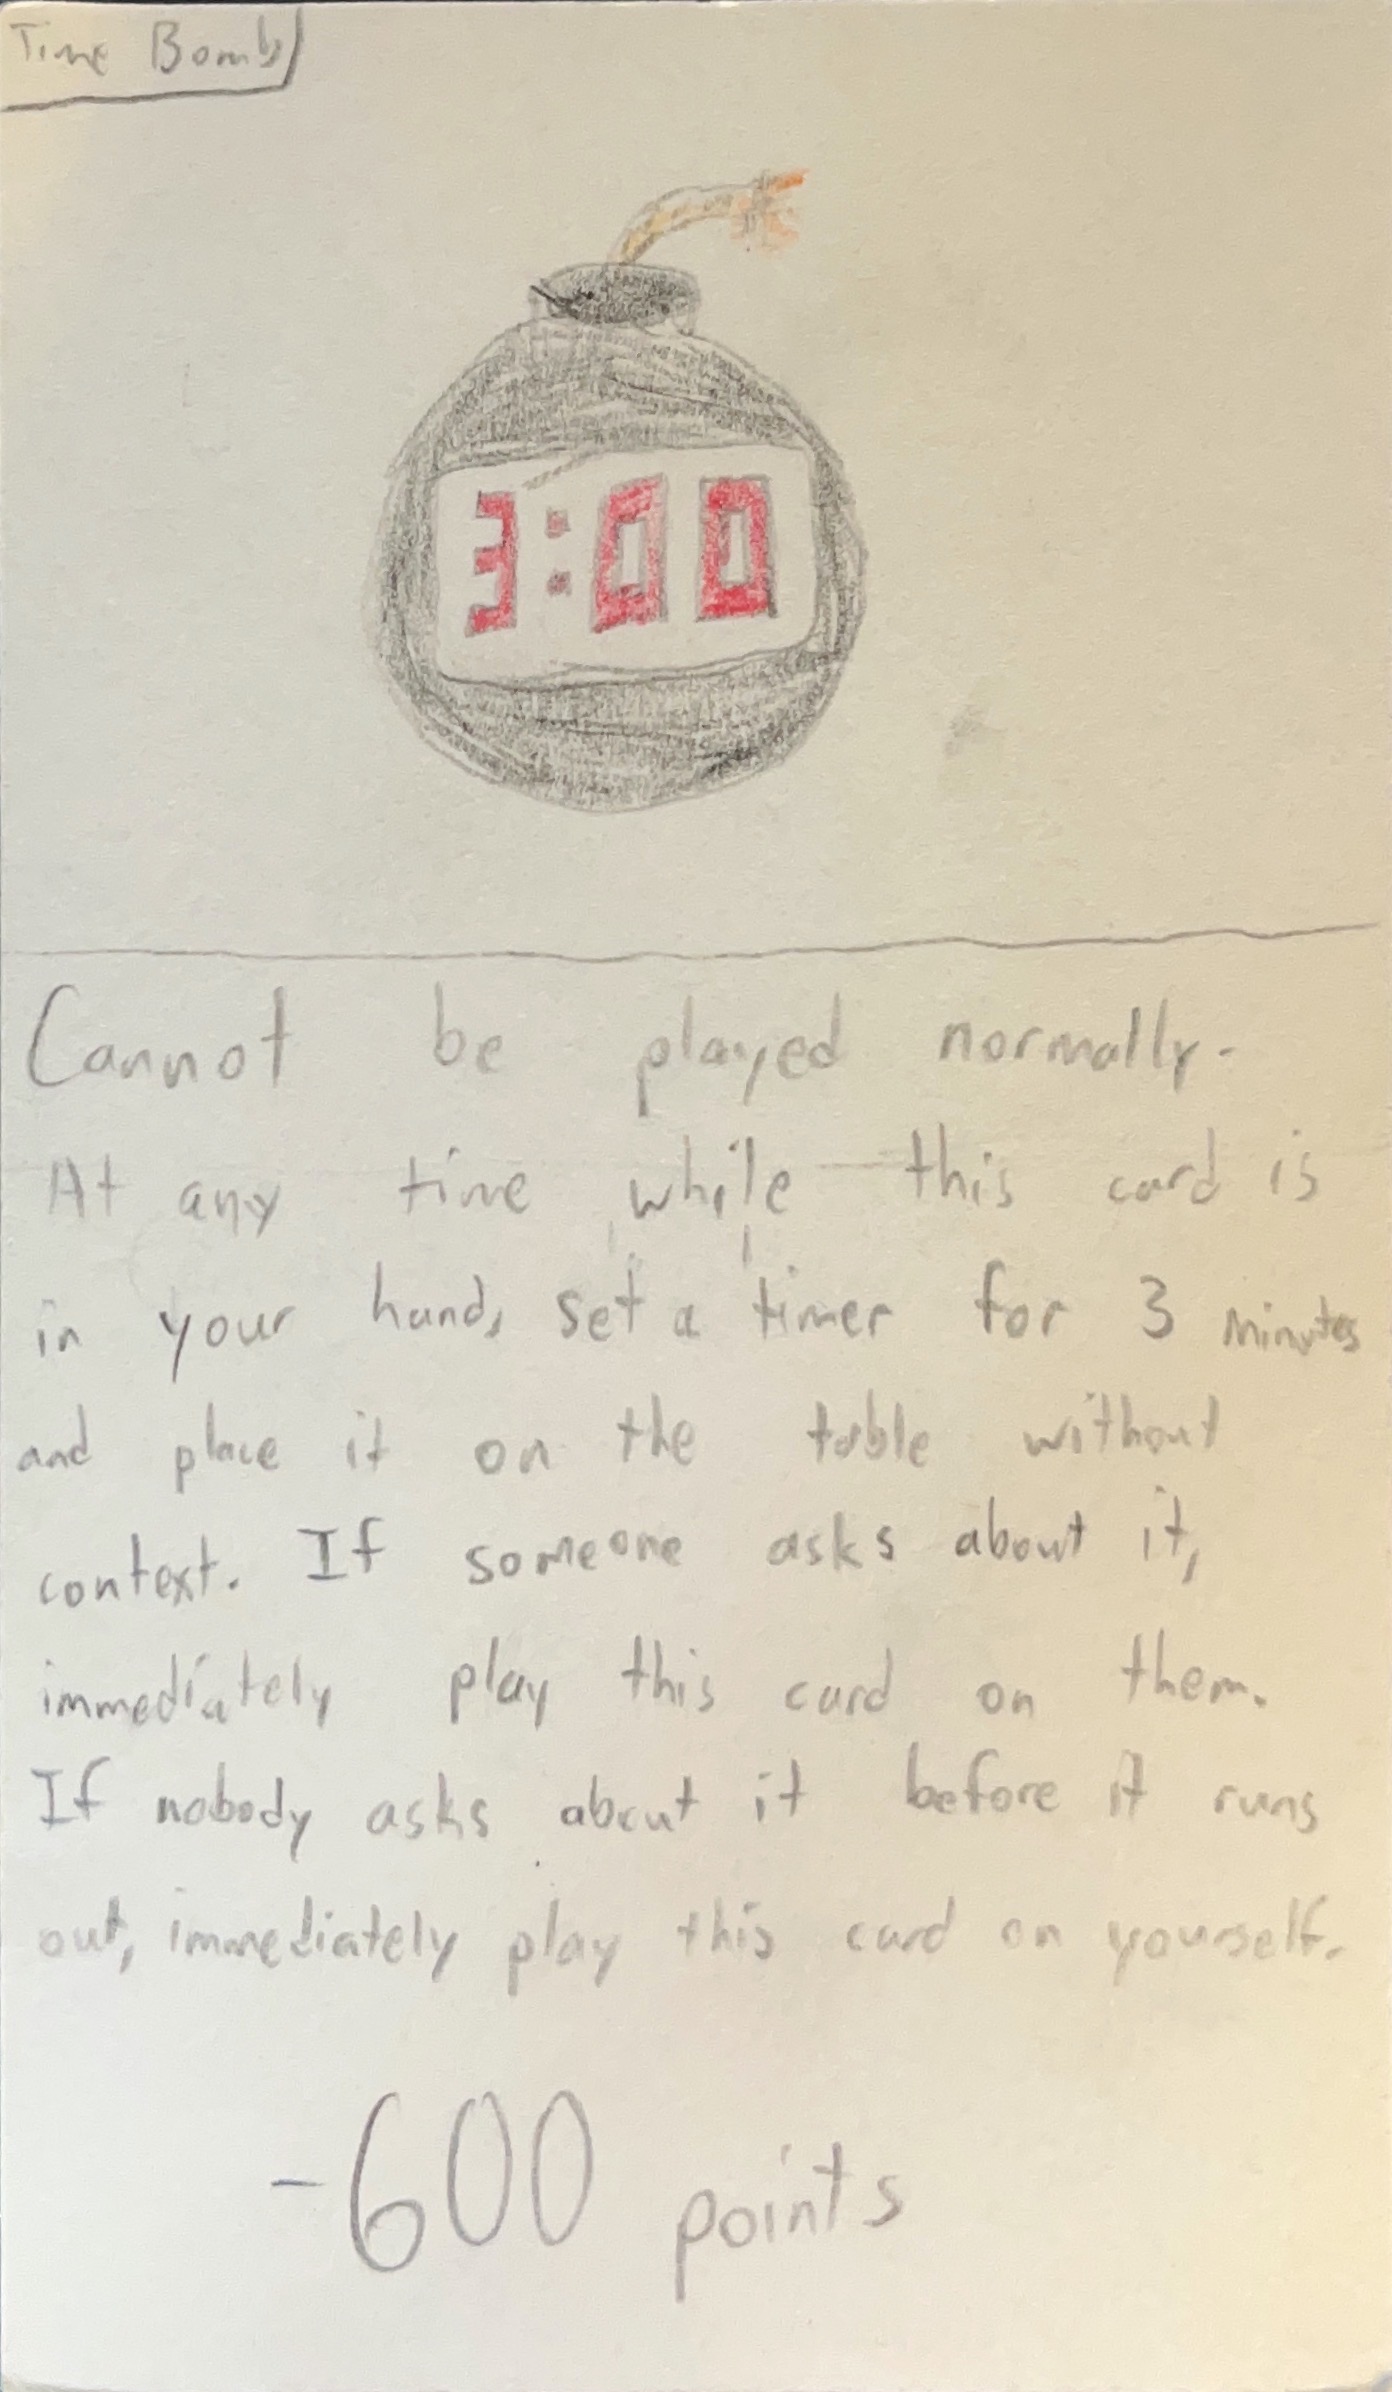 Time Bomb
3:00
Cannot be played normally.
At any time while this card is
in your hand, set a timer for 3 minutes
and place it on the table without
context. If someone asks about it,
immediately play this card on them.
If nobody asks about it before it runs
out, immediately play this card on yourself.
-600 points